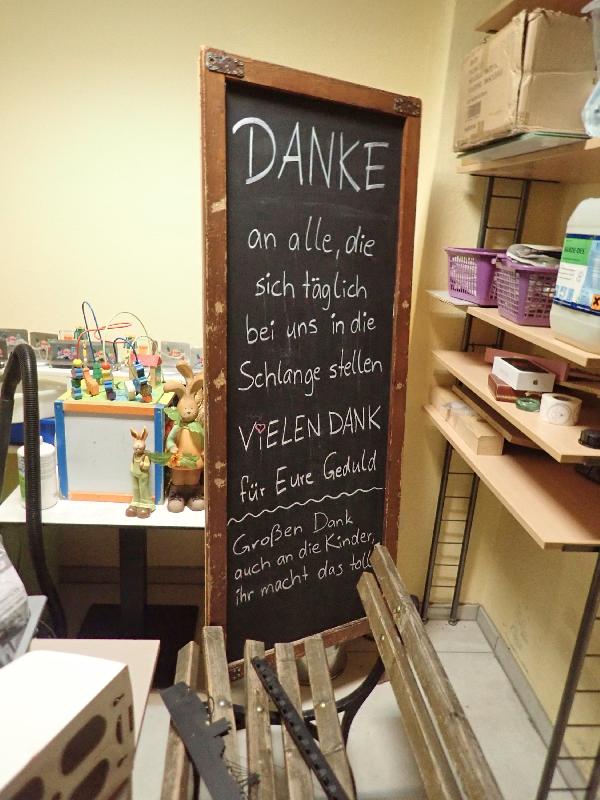 DANKE
an alle, die
sich täglich
bei uns in die
Schlange stellen
ViELEN DANK
für Eure Geduld
Großen Dank
auch an die Kinder,
ihr macht das toll